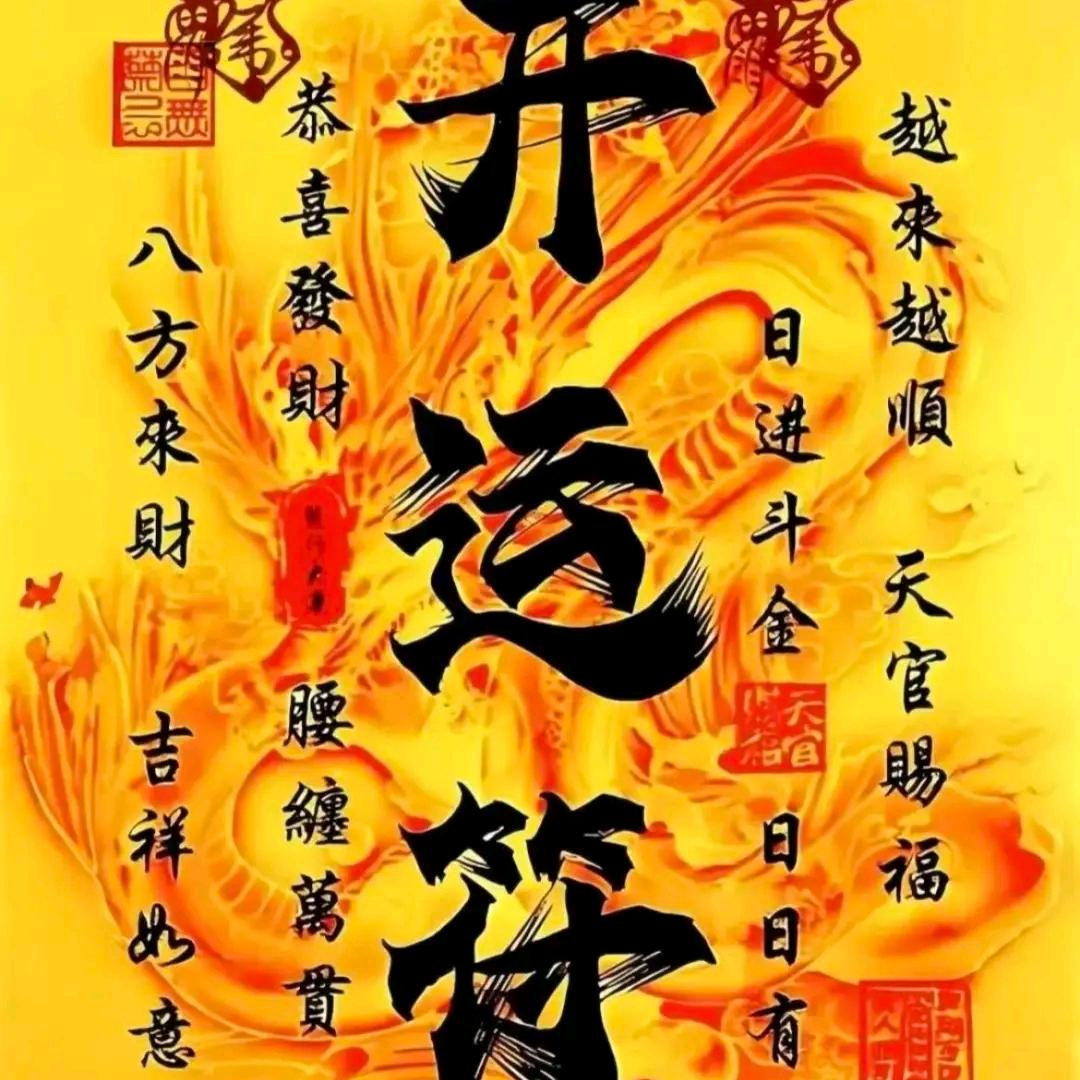 越來越順
天官賜福
日进斗金
日日有
开运符
恭喜發財
腰纏萬貫
八方來財
吉祥如意
天官賜福